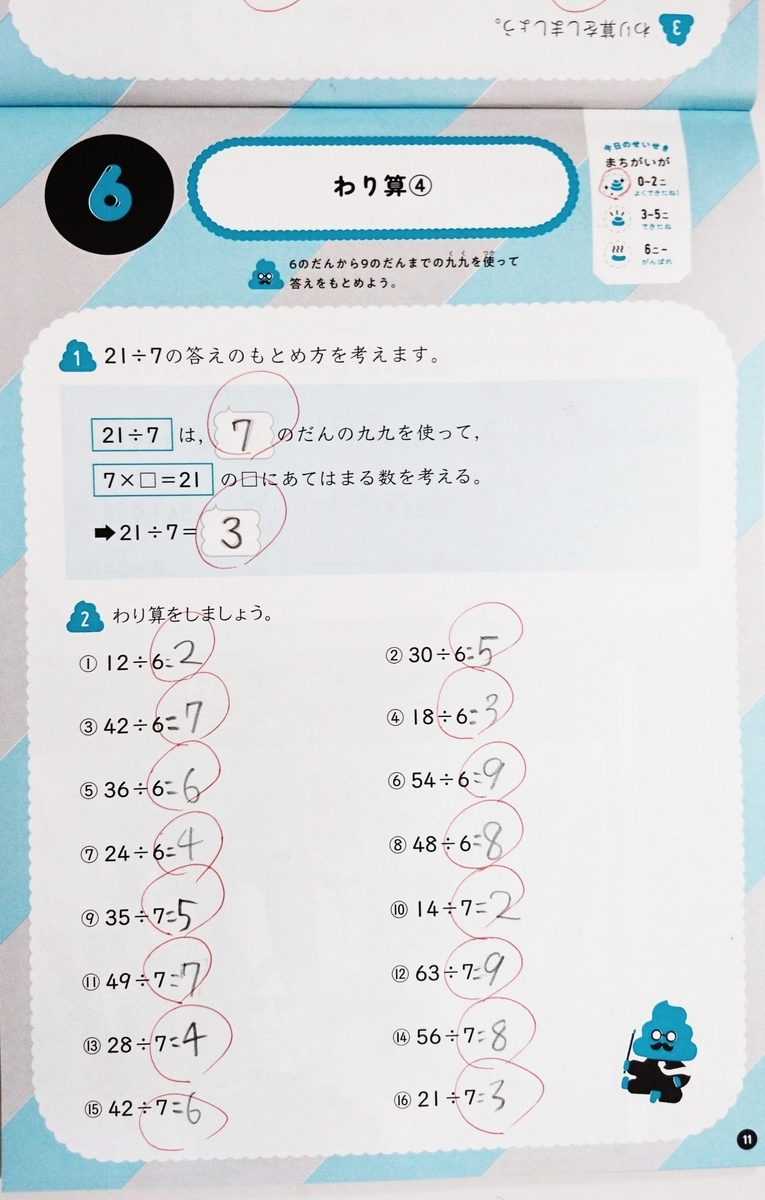 わり算をしましょう。
3
6
わり算④
今日のせいせき
まちがいが
0-2こ
よくできたね!
3-5こ
できたね
6こ~
がんばれ
6のだんから9のだんまでの九九を使って
答えをもとめよう。
1 21÷7の答えのもとめ方を考えます。
21÷7 は, 7 のだんの九九を使って,
7×□=21 の□にあてはまる数を考える。
➡21÷7=3
2 わり算をしましょう。
① 12÷6=2
② 30÷6=5
③ 42÷6=7
④ 18÷6=3
⑤ 36÷6=6
⑥ 54÷6=9
⑦ 24÷6=4
⑧ 48÷6=8
⑨ 35÷7=5
⑩ 14÷7=2
⑪ 49÷7=7
⑫ 63÷7=9
⑬ 28÷7=4
⑭ 56÷7=8
⑮ 42÷7=6
⑯ 21÷7=3
11